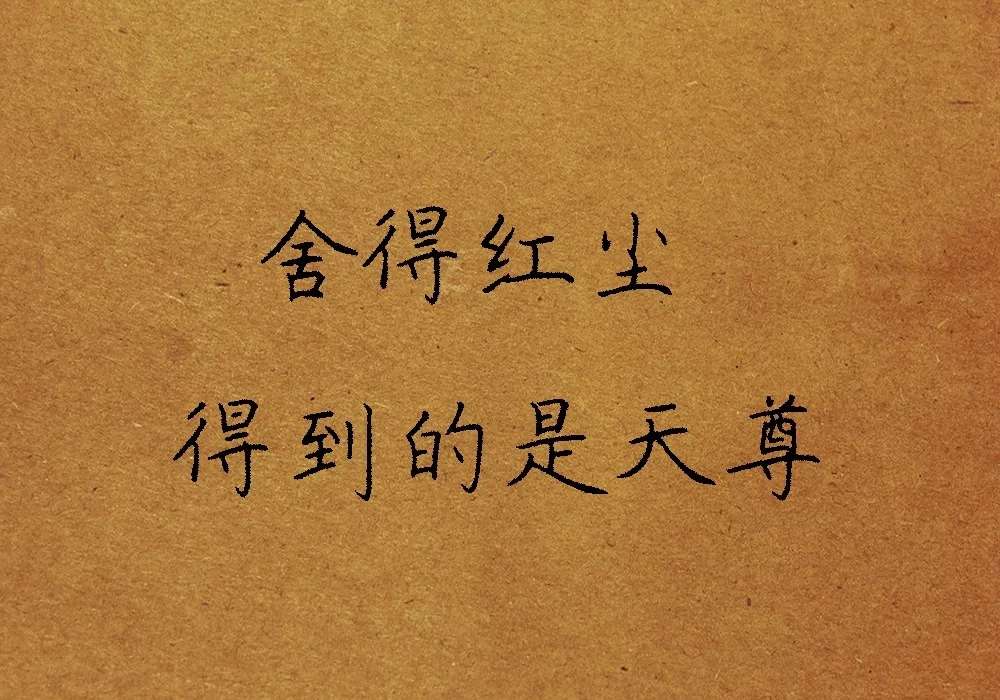 舍得红尘
得到的是天尊